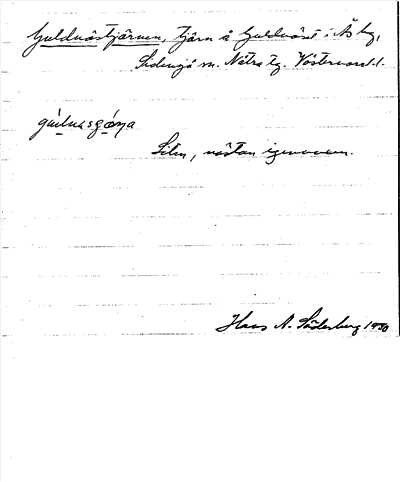 Guldnästjärnen, tjärn å Guldnäset i Ås by,
Sidensjö sn. Nätra tg. Västernorrl. l.
Liten, nästan igenvuxen.
Hans A. Söderberg 1930